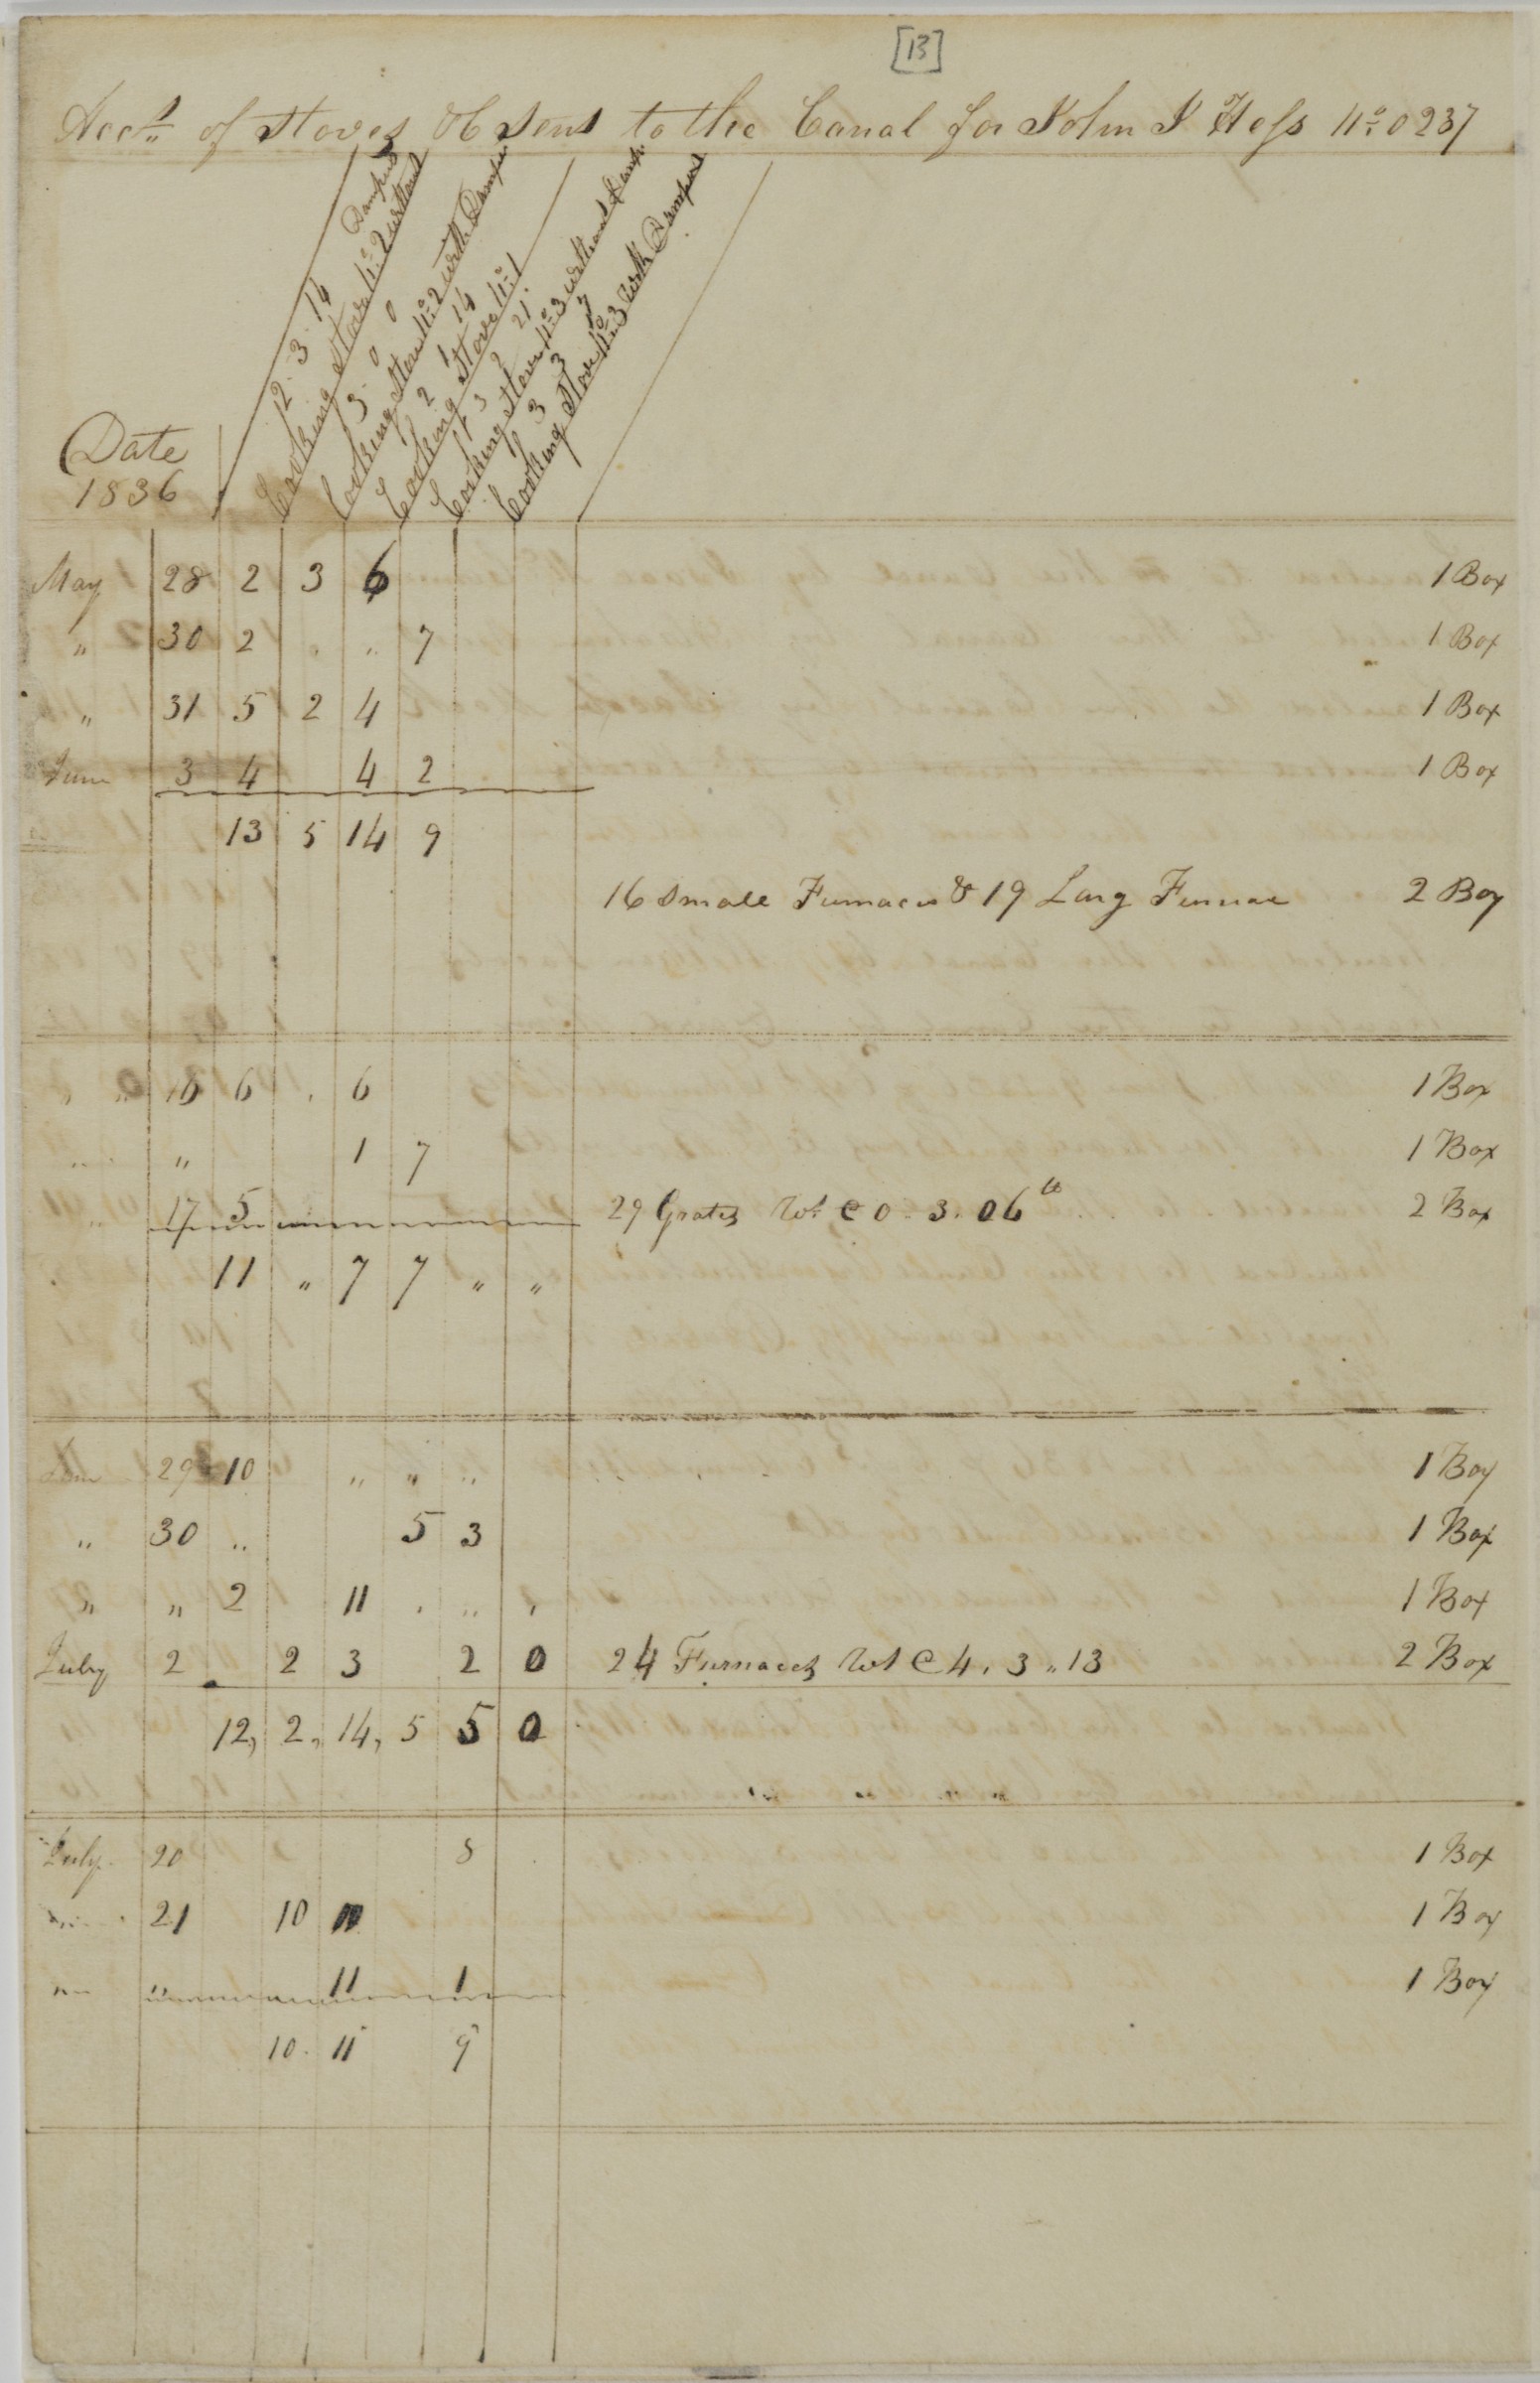 [13]
Acct. of Stoves &c Sent to the Canal for John I Hess No. 0237
2 - 3 - 14 Dampers
Cooking Stove No. 2 without
3 - 0 0
Cooking Stove No. 2 with Damper
2 1 14
Cooking Stove No. 1
3 2 21
Cooking Stove No. 3 without Damp.
3 3
Cooking Stove No. 3 with Dampers
Date
1836
May 28 2 3 6 1 Box
" 30 2 . .. 7 1 Box
" 31 5 2 4 1 Box
June 3 4 4 2 1 Box
13 5 14 9
16 Small Furnaces & 19 Larg Furnac 2 Box
" 6 . 6 1 Box
" 1 7 1 Box
17 5 29 Grates Wt. C 0 - 3. 06 lb 2 Box
11 " 7 7 " "
June 29 10 " " " 1 Box
" 30 .. 5 3 1 Box
" " 2 11 . .. . 1 Box
July 2 2 3 2 0 24 Furnaces Wt C 4, 3 " 13 2 Box
12, 2, 14, 5 5 0
July 20 8 1 Box
" 21 10 1 Box
" " 11 1 1 Box
10. 11 9